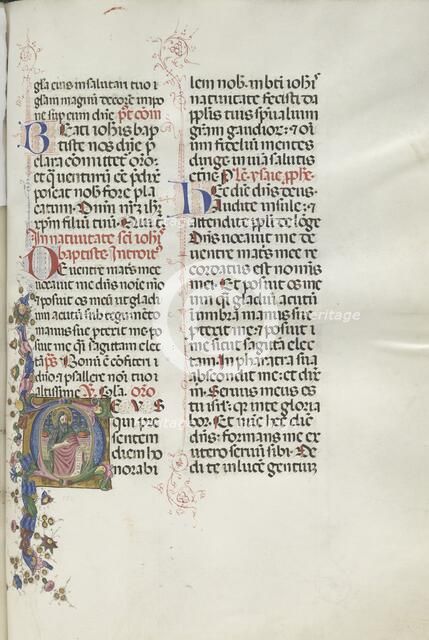 gl̄a eius in salutari tuo ⁊
gl̄am magnū decorē impo
ne sup eum dn̄e. pꝰt com̄
Beati ioh̄is bap
tiste nos dn̄e p̄
clara comitteť oro:
et quē uenturū eē p̄dix̄
poscat nob̄ fore pla
catum.
filiū tuū.
In natiuitate sc̄i ioh̄is
baptiste. Introitꝰ
De uentre mat̄s mee
uocauit me dn̄s noīe meo
⁊ posuit os meū ut gladiū
acutū sub tegumēto
manus sue ꝓterit me ⁊ po
suit me qī sagittam elec
tam. p̄s. Bonū ē confiteri
dn̄o ⁊ psallere noī tuo
altissime. Gl̄a. oro
Deus
qui pre
sentem
diem ho
norabi
lem nob̄ in bt̄i ioh̄is
natiuitate fecisti da
ppl̄is tuis spūalium
gr̄am gaudior̄: ⁊ oīu
um fidelium mentes
dirige in uiā salutis
etn̄e. ysaie pphē.
Hec dic̄ dn̄s deus.
Audite insule: ⁊
attendite ppl̄i de lōge.
Dn̄s uocauit me de
uentre mat̄s mee re
cordatus est noīs
mei. Et posuit os me
um qī gladiū acutū
umbra manus sue
ꝓterit me: ⁊ posuit
me sicut sagittā elec
tam. In pharetra sua
abscondit me: et dix̄
m̄. Seruus meus es
tu isrl̄: qr̄ in te gloria
bor. Et nc̄ hec dic̄
dn̄s: formans me ex
utero seruū sibi. De
di te in lucē gentium